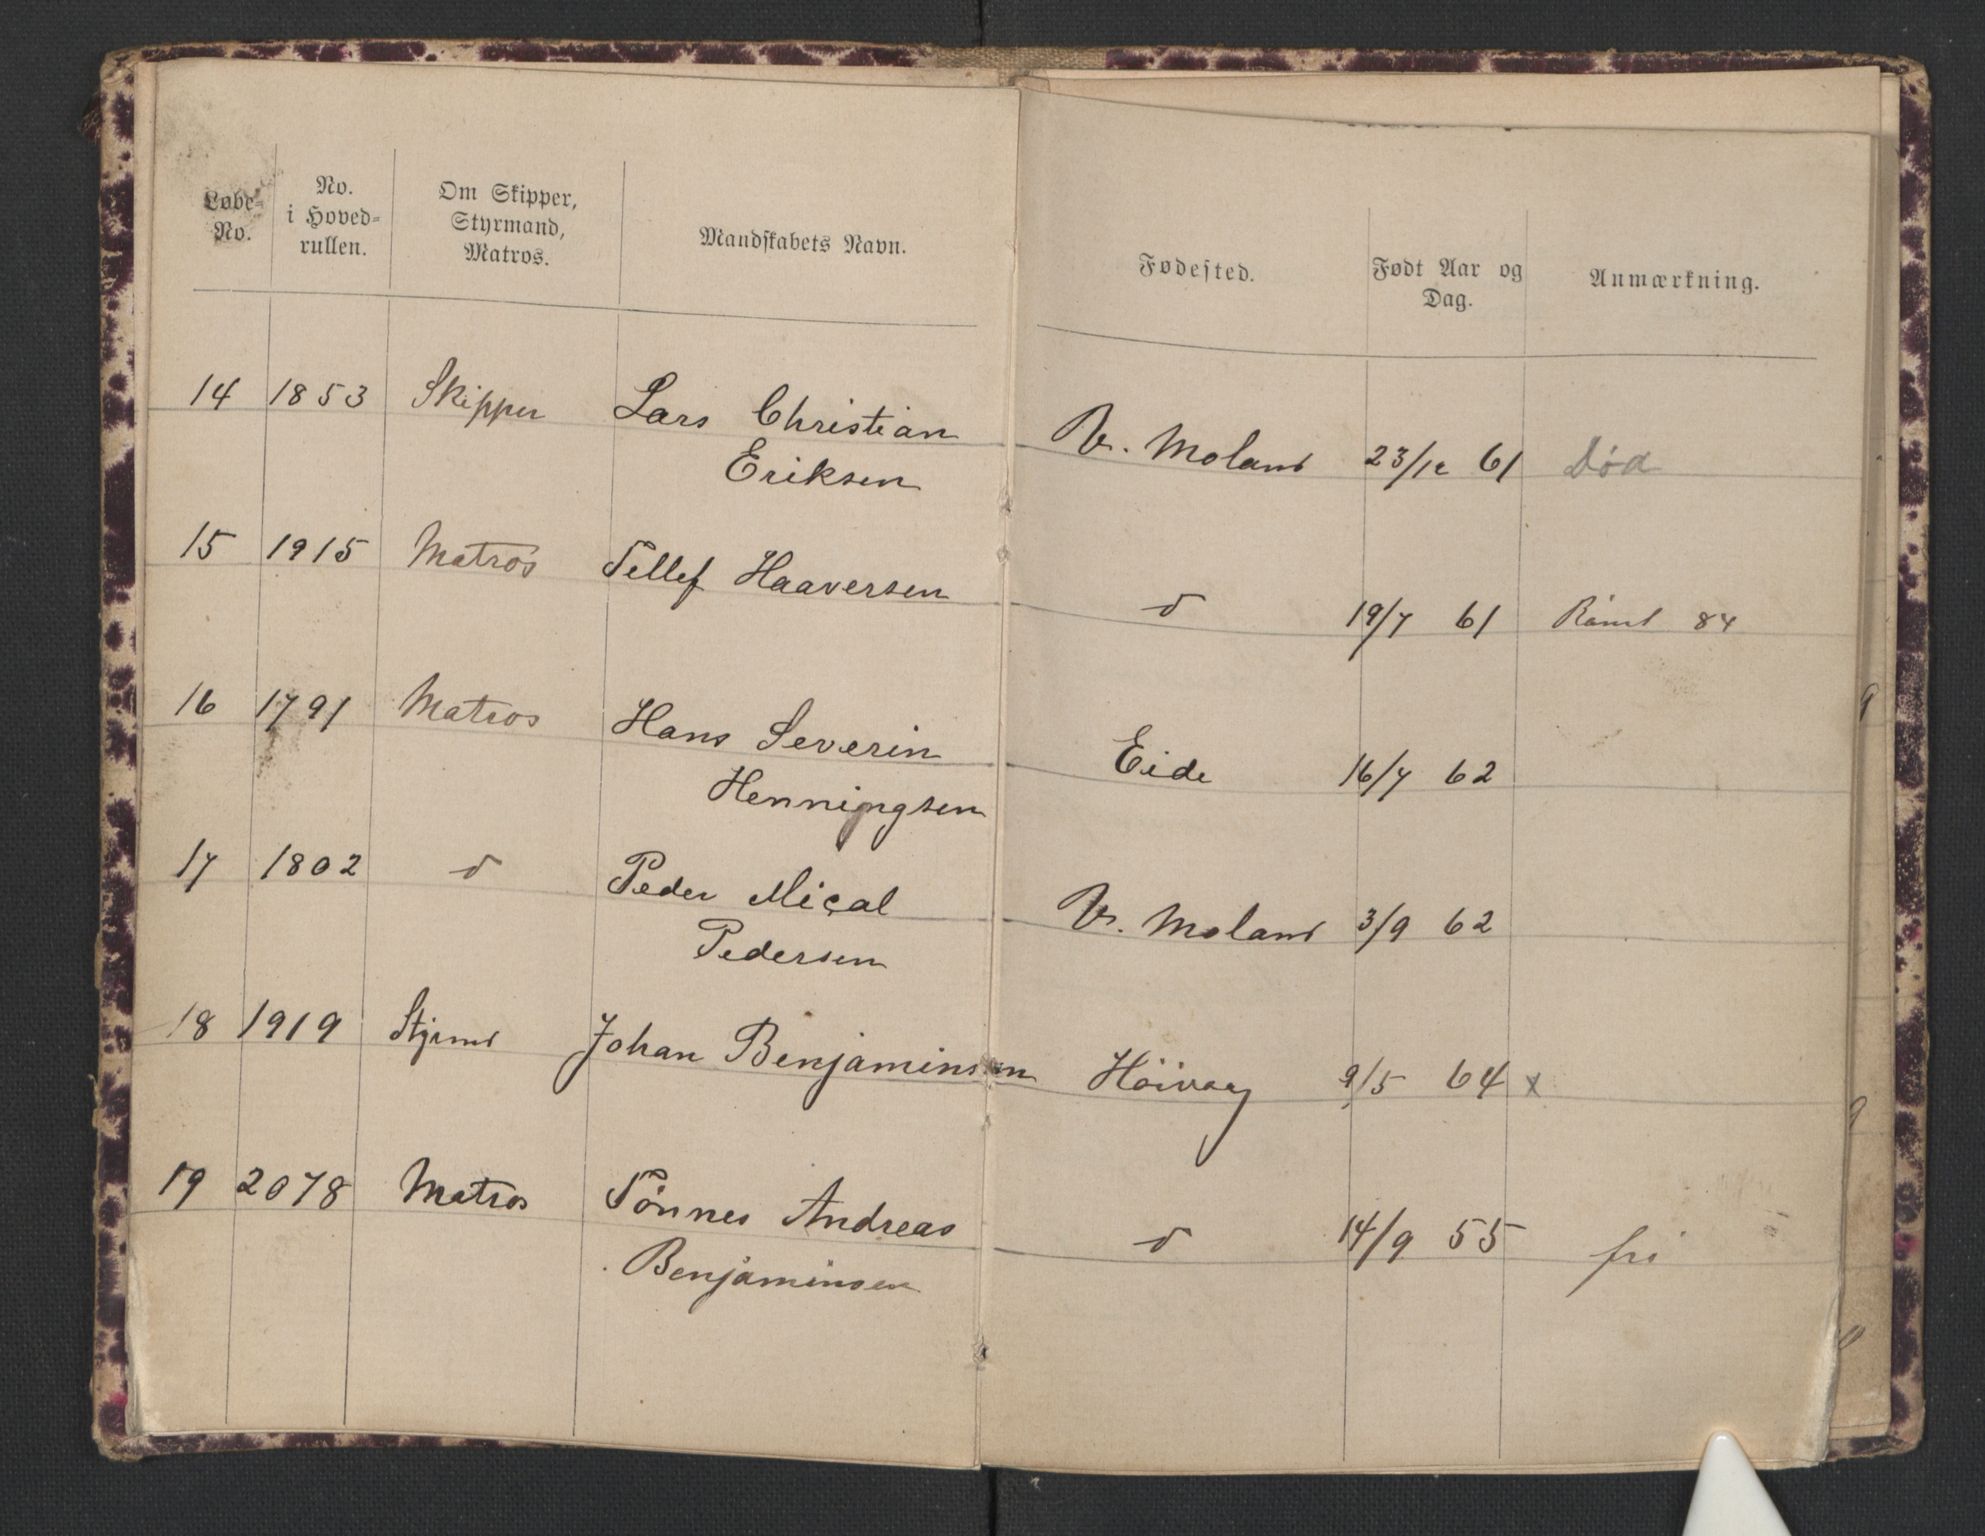 Løbe-No.	No. i Hoved-rullen.	Om Skipper, Styrmand, Matros.	Mandskabets Navn.	Fødested.	Født Aar og Dag.	Anmærkning.
14	1853	Skipper	Lars Christian	V. Moland	23/12 61	Død
Eriksen
15	1915	Matros	Tellef Haaversen	d	19/7 61	Rømt 84
16	1791	Matros	Hans Severin	Eide	16/7 62
Henningsen
17	1802	d	Peder Miçal	V. Moland	3/9 62
Pedersen
18	1919	Styrmd	Johan Benjaminsen	Höivaag	9/5 64	x
19	2078	Matros	Tönnes Andreas	d	14/9 55	fri
Benjaminsen